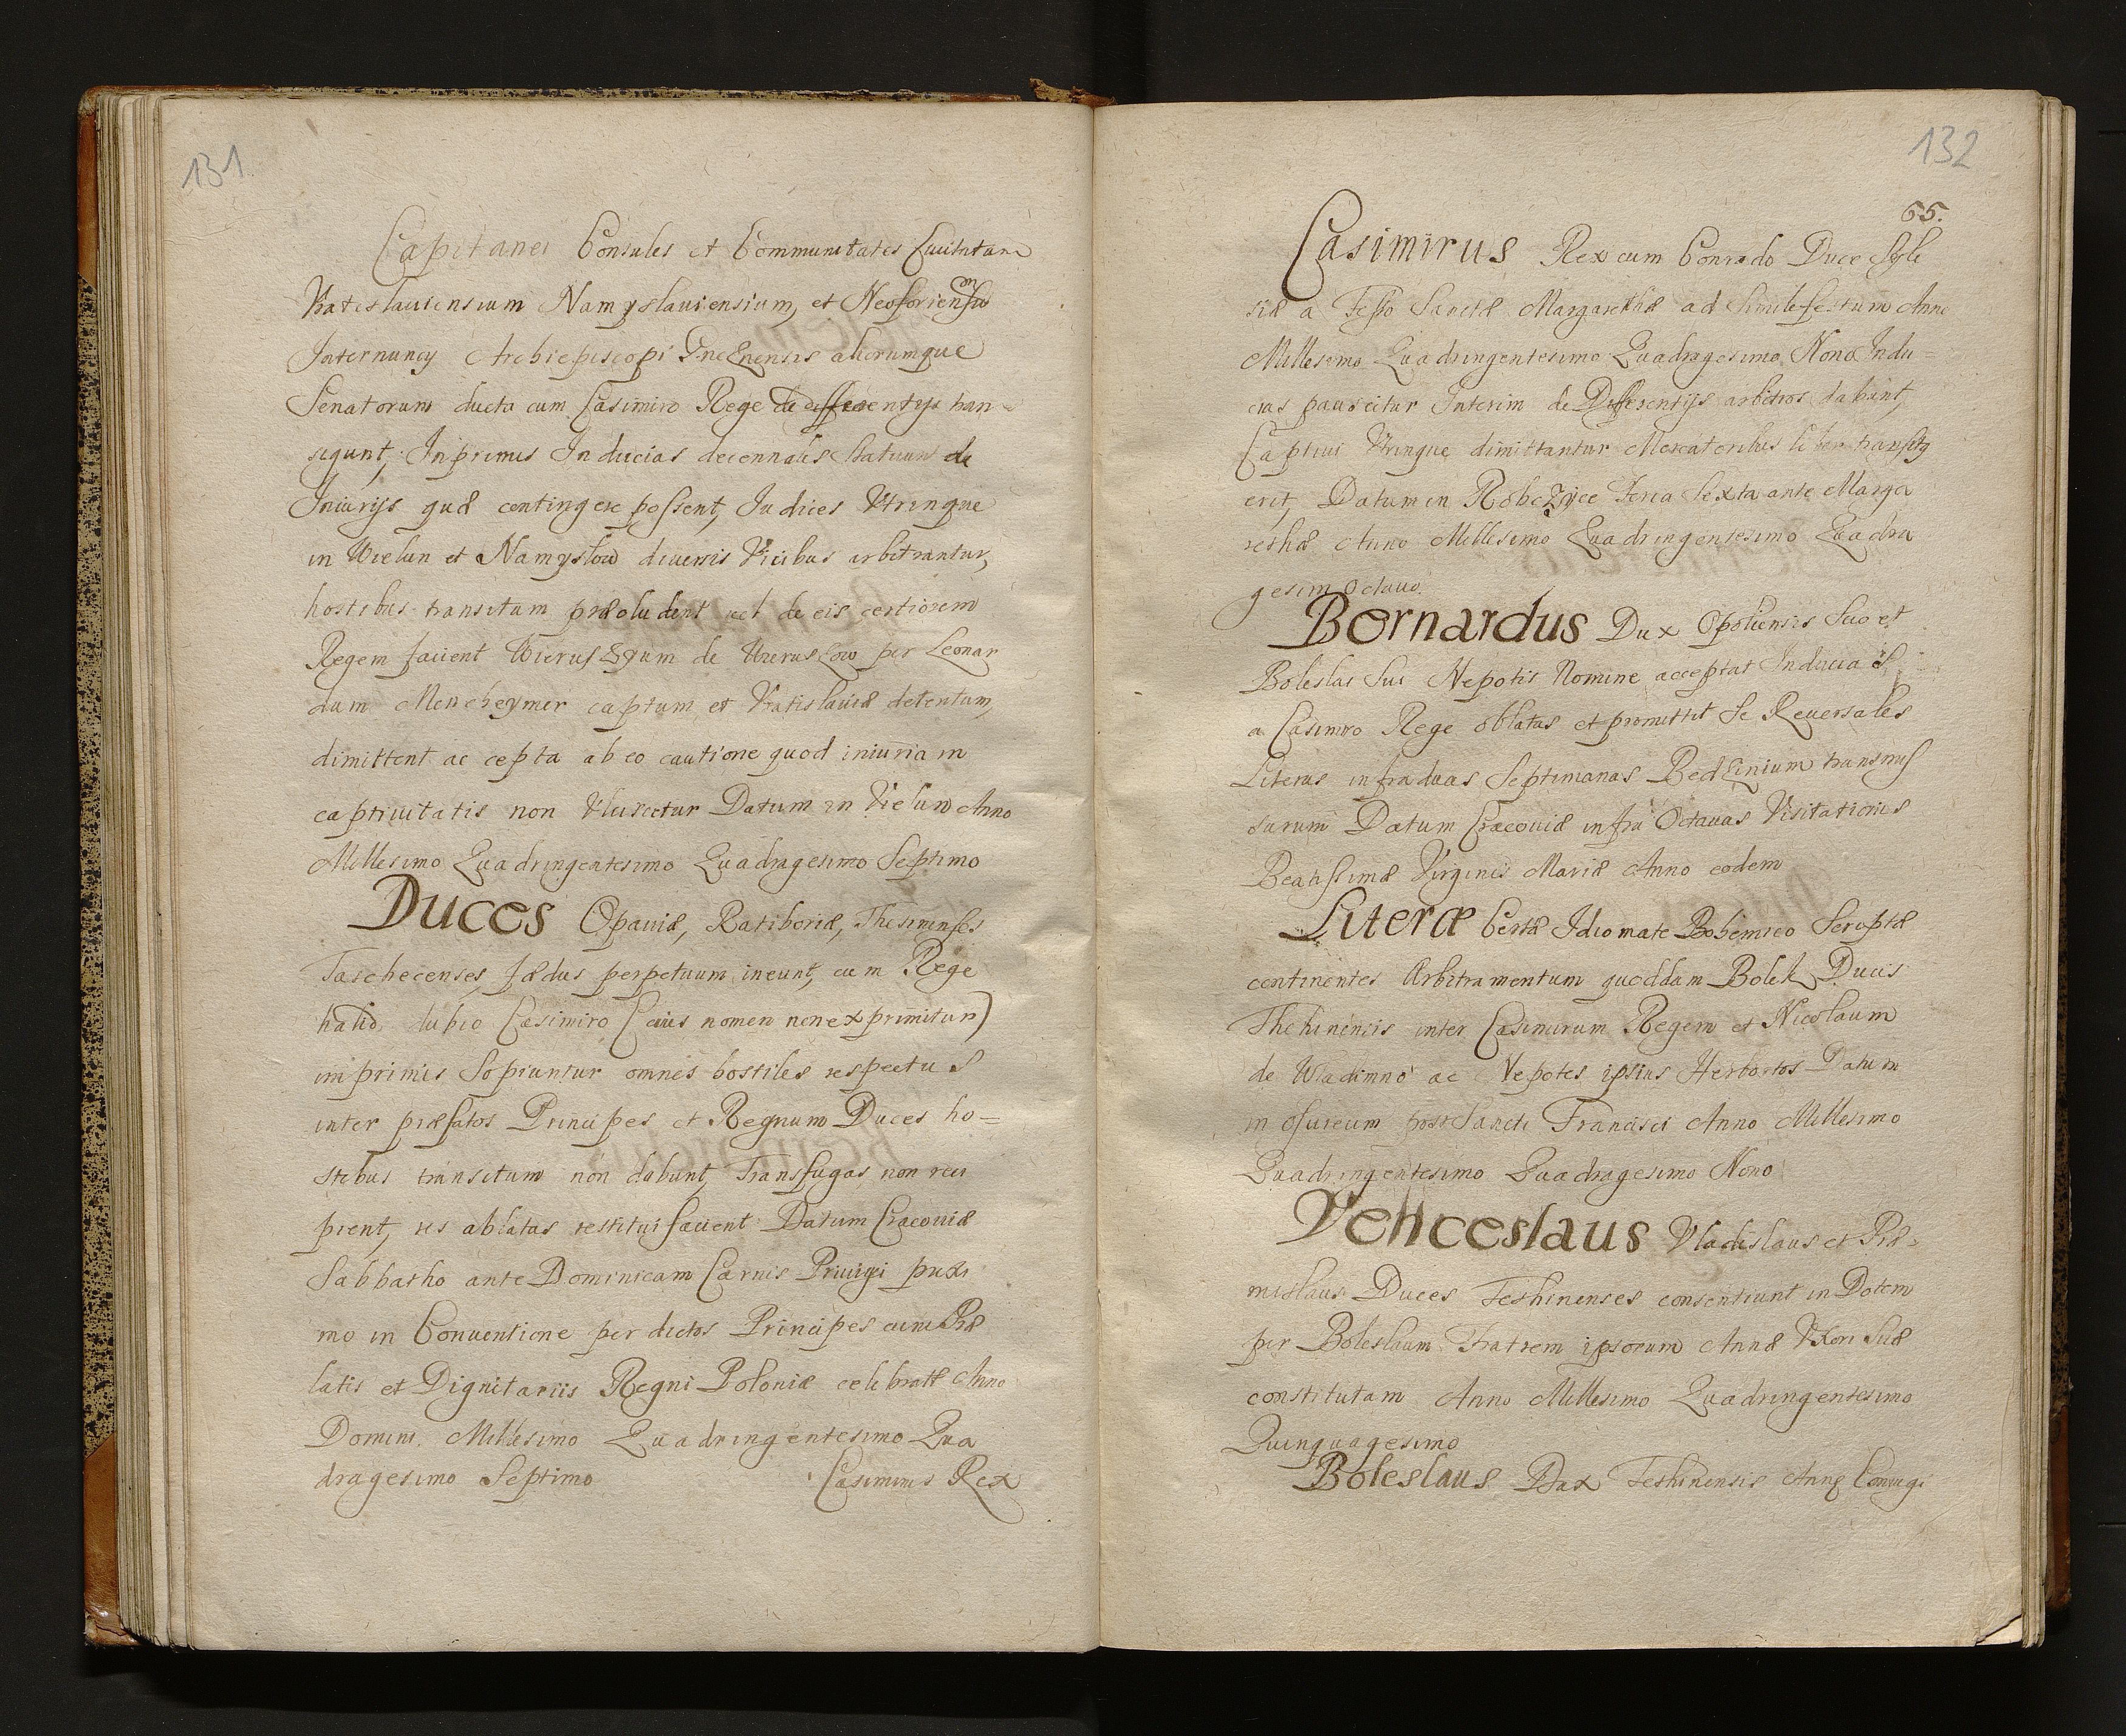 131
Capitanei Consules et Communitates Civitatum
Vratislauiensium Namyslauiensium, et Neoforiensium
Internuncy Archiepiscopi Gneznensis aliorumque
Senatorum ducta cum Casimiro Rege de differentijs tran=
sigunt, Inprimis Inducias decennales statuunt de
Iniurijs quæ contingere possent, Iudices Vtrinque
in Wielun et Namyslow diuersis Vicibus arbitrantur,
hostibus transitum præcludent vel de eis certiorem
Regem facient Wieruszyum de Wieruszow per Leonar
dum Mencheymer captum et Vratislauiæ detentum,
dimittent ac cepta ab eo cautione quod iniuriam
captiuitatis non Vlciscetur Datum in Vielun Anno
Millesimo Quadringentesimo Quadragesimo Septimo
Duces Opauiæ, Ratiboriæ, Thesinenses
Taschecenses, fædus perpetuum ineunt, cum Rege
haud dubio Casimiro (cuius nomen non exprimitur)
imprimis Sopiuntur omnes hostiles respectus
inter præfatos Principes et Regnum Duces ho=
stibus transitum non dabunt, Transfugas non reci
pient, res ablatas restitui facient Datum Cracouiæ
Sabbatho ante Dominicam Carnis Priuigi proxi
mo in Conuentione per dictos Principes cum Præ
latis et Dignitariis Regni Poloniæ celebratæ Anno
Domini Millesimo Quadringentesimo Qua
dragesimo Septimo
Casimirus Rex
132
65.
Casimirus Rex cum Conrado Duce Syle
siæ a Festo Sanctæ Margarethæ ad simile festum Anno
Millesimo Quadringentesimo Quadragesimo Nono Indu=
cias pauscitur Interim de Differentijs arbitros dabunt,
Captiui Vtrinque dimittantur Mercatoribus liber transitq
erit, Datum in Robczyce Feria Sexta ante Marga
rethæ Anno Millesimo Quadringentesimo Quadra
gesim Octauo.
Bernardus Dux Opoliensis Suo et
Boleslai Sui Nepotis Nomine acceptat Inducias
a Casimiro Rege oblatas et promittit Se Reuersales
Literas infra duas Septimanas Bedzinium transmis
surum Datum Cracouiæ infra Octauas Visitationis
Beatissimæ Virginis Mariæ Anno eodem
Literæ Certæ Idiomate Bohemico Scriptæ
continentes Arbitramentum quoddam Bolek Ducis
Theshinensis inter Casimirum Regem et Nicolaum
de Wladimno ac Nepotes ipsius Herbortos Datum
in post Sancti Francisci Anno Millesimo
Quadringentesimo Quadragesimo Nono
Venceslaus Vladislaus et Præ=
mislaus Duces Teshinenses consentiunt in Dotem
per Boleslaum Fratrem ipsorum Annæ Vxori Suæ
constitutam Anno Millesimo Quadringentesimo
Quinquagesimo
Boleslaus Dux Teshinensis Annę Coniugi